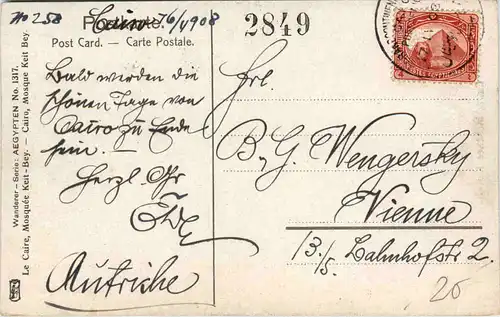 No 258 Cairo 16/1 1908
2849
Postkarte.
Post Card. — Carte Postale.
Bald werden die
schönen Tage von
Cairo zu Ende
sein. —
Herzl. Gr
Autriche
Frl.
B. G. Wengersky
Vienne
13./5. Bahnhofstr 2.
20
Wanderer-Serie: AEGYPTEN No. 1317.
Le Caire, Mosquée Keit-Bey. Cairo, Mosque Keit Bey.